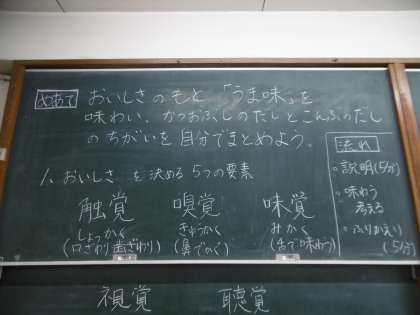 めあて おいしさのもと「うま味」を
味わい、かつおぶしのだしとこんぶのだし
のちがいを自分でまとめよう。
流れ
・説明(5分)
・味わう
考える
・ふりかえり
(5分)
1. おいしさを決める5つの要素
触覚 嗅覚 味覚
しょっかく きゅうかく みかく
(口ざわり歯ざわり) (鼻でかぐ) (舌で味わう)
視覚 聴覚